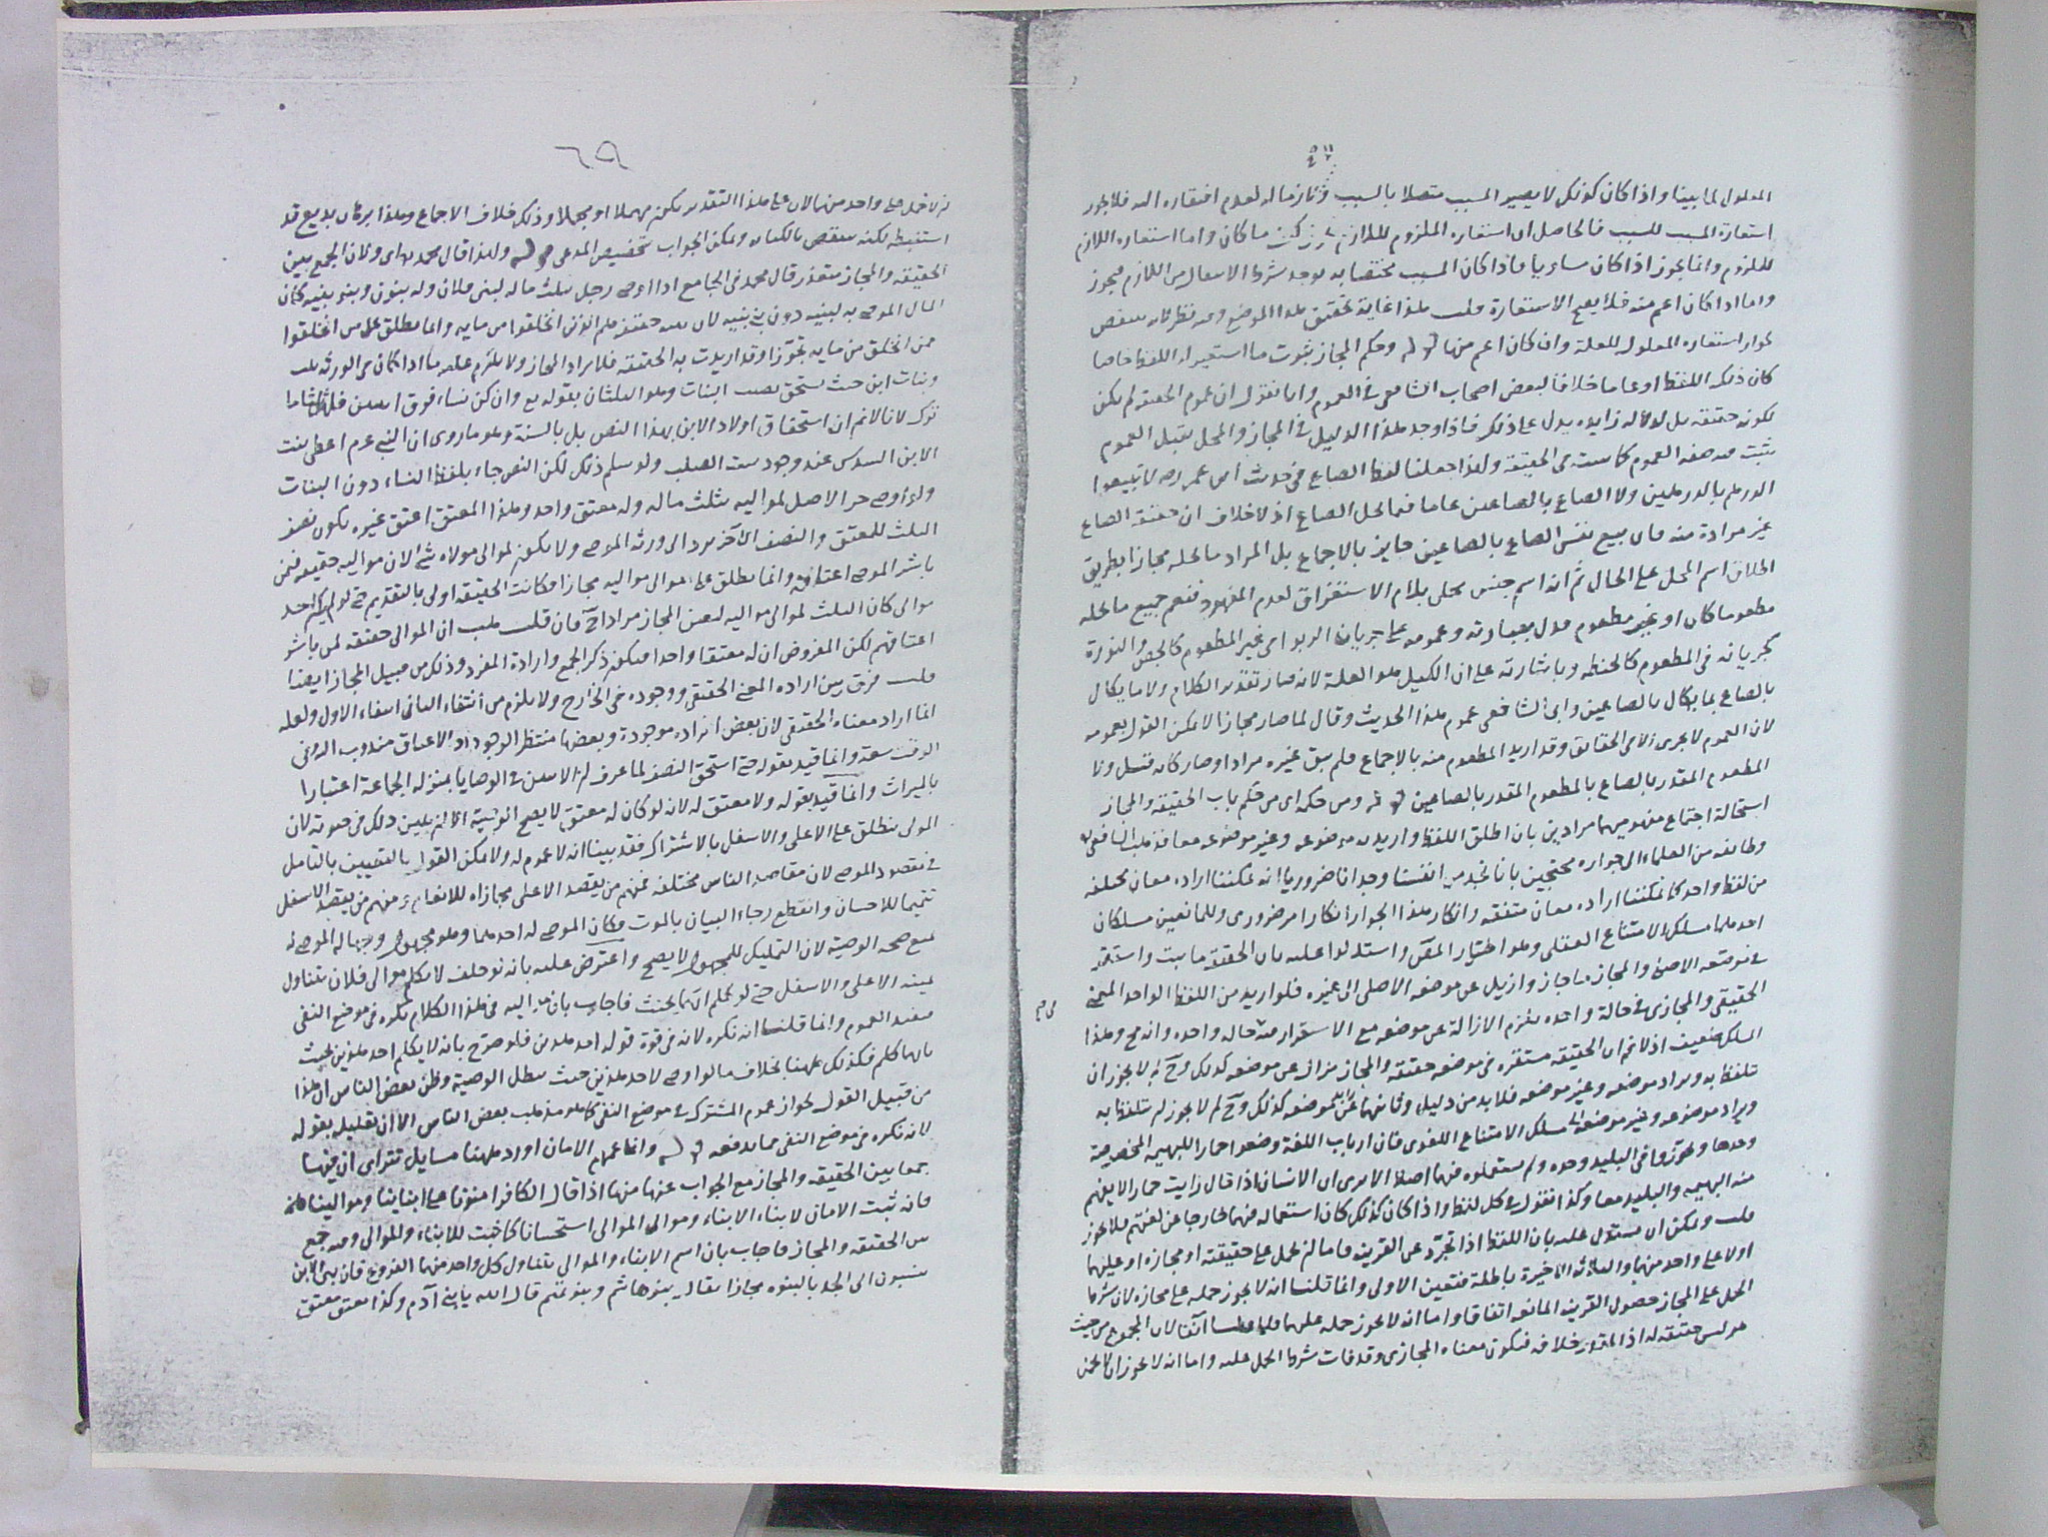 المعلول لما بينا واذا كان كذلك لا يصير المسبب متصلا بالسبب لعدم افتقاره اليه فلا يجوز
استعارة المسبب للسبب فالحاصل ان استعارة الملزوم للازم ما كان واما استعارة اللازم
للملزوم وانما يجوز اذا كان مساويا فاذا كان المسبب مختصا به يوجد شرط من اللازم فيجوز
واما اذا كان اعم منه فلا يصح الاستعارة قلت هذا غاية تحقيق هذا الموضع وفيه نظر لانه ينتقض
بجواز استعارة المعلول للعلة وان كان اعم منها قوله وحكم المجاز ثبوت ما استعير له اللفظ خاصا
كان ذلك اللفظ او عاما خلافا لبعض اصحاب الشافعي في العموم وانا نقول ان عموم الحقيقة لم يكن
لكونه حقيقة بل لدلالة زايدة يدل على ذلك فاذا وجد هذا الدليل في المجاز والمحل يقبل العموم
يثبت فيه صفة العموم كما يثبت في الحقيقة ولهذا جعلنا لفظ الصاع في حديث ابن عمر رضه لا تبيعوا
الدرهم بالدرهمين ولا الصاع بالصاعين عاما فيما يحل الصاع اذ لا خلاف ان حقيقة الصاع
غير مرادة منه فان بيع نفس الصاع بالصاعين جايز بالاجماع بل المراد ما يحله مجازا بطريق
اطلاق اسم المحل على الحال ثم انه اسم جنس محلى بلام الاستغراق لعدم المعهود فتعم جميع ما يحله
مطعوما كان او غير مطعوم فدل بعبارته وعمومه على جريان الربوا في غير المطعوم كالجص والنورة
كجريانه في المطعوم كالحنطة وباشارته على ان الكيل هو العلة لانه صار تقدير الكلام ولا ما يكال
بالصاع بما يكال بالصاعين وابى الشافعي عموم هذا الحديث وقال لما صار مجازا لا يمكن القول بعمومه
لان العموم لا يجري الا في الحقائق وقد اريد المطعوم منه بالاجماع فلم يبق غيره مرادا وصار كانه قيل ولا
المطعوم المقدر بالصاع بالمطعوم المقدر بالصاعين قوله ومن حكمه اي من حكم باب الحقيقة والمجاز
استحالة اجتماع مفهوميهما مرادين بان اطلق اللفظ واريد به موضوعه وغير موضوعه معا فذهب الشافعي
وطائفة من العلماء الى جوازه محتجين بانا نجد من انفسنا وجدانا ضروريا انه يمكننا ارادة معان مختلفة
من لفظ واحد كما يمكننا ارادة معان متفقة وانكار هذا الجواز انكار امر ضروري وللمانعين مسلكان
احدهما مسلك الامتناع العقلي وهو اختيار المص واستدلوا عليه بان الحقيقة ما ثبت واستقر
في موضعه الاصلي والمجاز ما جاز وازيل عن موضعه الاصلي الى غيره فلو اريد من اللفظ الواحد المعنى
الحقيقي والمجازي في حالة واحدة يلزم الازالة عن موضعه مع الاستقرار فيه حالة واحدة وانه مح وهذا
المسلك ضعيف اذ لا نم ان الحقيقة مستقرة في موضعه حقيقة والمجاز مزال عن موضعه كذلك وح لم لا يجوز ان
تلفظ به ويراد موضعه وغير موضعه فلا بد من دليل كذلك وح لم لا يجوز لم تلفظ به
ويراد موضوعه وغير موضوعه مسلك الامتناع اللغوي فان ارباب اللغة وضعوا حمارا للبهيمة المخصوصة
وحدها وتجوزوا في البليد وحده ولم يستعملوه فيهما اصلا الا يرى ان الانسان اذا قال رايت حمارا لا يفهم
منه البهيمة والبليد معا وكذا نقول في كل لفظ واذا كان كذلك كان استعماله فيهما خارجا عن لغتهم فلا يجوز
قلت ويمكن ان يستدل عليه بان اللفظ اذا تجرد عن القرينة فاما لم يحمل على حقيقته او مجازه او عليهما
اولا على واحد منهما والثلاثة الاخيرة باطلة فتعين الاولى وانما قلنا انه لا يجوز حمله على مجازه لان شرط
الحمل على المجاز حصول القرينة المانعة اتفاقا واما انه لا يجوز حمله عليهما آنفا لان المجموع من حيث
هو ليس حقيقة له اذ المقدر خلافه فيكون معناه المجازي وقد فات شرط الحمل عليه واما انه لا يجوز
٦٩
لم لا يحمل على واحد منهما لان على هذا التقدير يكون مهملا او مجملا وذلك خلاف الاجماع وهذا برهان بديع قد
استنبطه لكنه ينتقض ويمكن الجواب بتخصيص المدعى قوله ولهذا قال محمد اي ولان الجمع بين
الحقيقة والمجاز متعذر قال محمد في الجامع اذا اوصى رجل بثلث ماله لبني فلان وله بنون وبنو بنيه كان
المال الموصى به لبنيه دون بني بنيه لان حقيقة هم الذين انخلقوا من مايه وانما يطلق على من انخلقوا
ممن انخلق من مايه تجوزا وقد اريدت به الحقيقة فلا يراد المجاز ولا يلزم عليه ما اذا كان في الورثة بنت
وبنات ابن حيث يستحق نصيب البنات وهو الثلثان بقوله تع وان كن نساء فوق اثنتين فلهن ثلثا ما
ترك لانا لا نم ان استحقاق اولاد الابن بهذا النص بل بالسنة وهو ما روي ان النبي عم اعطى بنت
الابن السدس عند وجود بنت الصلب ولو سلم ذلك لكن النص جاء بلفظ النساء دون البنات
ولو اوصى حر الاصل لمواليه بثلث ماله وله معتق واحد وهذا المعتق اعتق غيره يكون نصف
الثلث للمعتق والنصف الآخر يرد الى ورثة الموصي ولا يكون لموالي مولاه شي لان مواليه حقيقة فمن
باشر الموصي اعتاقه وانما يطلق على موالي مواليه مجازا فكانت الحقيقة اولى بالتقديم حتى لو لم يكن له
موالي كان الثلث لموالي مواليه لتعين المجاز مرادا ح فان قلت هب ان الموالي حقيقة لمن باشر
اعتاقهم لكن المفروض ان له معتقا واحدا فيكون ذكر الجمع وارادة المفرد وذلك من قبيل المجاز ايضا
قلت فرق بين ارادة المعنى الحقيقي ووجوده في الخارج ولا يلزم من انتفاء الثاني انتفاء الاول ولعله
انما اراد معناه الحقيقي لان بعض افراده موجودة وبعضها منتظر الوجود اذ الاعتاق مندوب اليه في
الوقت سعة وانما قيد بقوله حتى استحق النصف لما عرف ان الاثنين في الوصايا بمنزلة الجماعة اعتبارا
بالميراث وانما قيد بقوله ولا معتق له لانه لو كان له معتق لا يصح الوصية الا ان يبين ذلك في حيوته لان
المولى ينطلق على الاعلى والاسفل بالاشتراك فقد بينا انه لا عموم له ولا يمكن القول بالتعيين بالتامل
في مقصود الموصي لان مقاصد الناس مختلفة فمنهم من يقصد الاعلى مجازاة للانعام ومنهم من يقصد الاسفل
تتميما للاحسان وانقطع رجاء البيان بالموت فكان الموصى له احدهما وهو مجهول وجهالة الموصى له
تمنع صحة الوصية لان التمليك للمجهول لا يصح واعترض عليه بانه لو حلف لا يكلم موالي فلان يتناول
يمينه الاعلى والاسفل حتى لو كلم ايهما يحنث فاجاب بان مواليه في هذا الكلام نكرة في موضع النفي
فيفيد العموم وانما قلنا انه نكرة لانه في قوة قوله احد هذين فلو صرح بانه لا يكلم احد هذين يحنث
بايهما كلم فكذلك ههنا بخلاف ما لو اوصى لاحد هذين حيث يبطل الوصية وظن بعض الناس ان هذا
من قبيل القول بجواز عموم المشترك في موضع النفي كما هو مذهب بعض الناس الا ان تعليله بقوله
لانه نكرة في موضع النفي مما يدفعه قوله وانما عمهم الامان اورد ههنا مسايل تترا اى ان فيها
جمعا بين الحقيقة والمجاز مع الجواب عنها منها اذا قال الكافر امنونا على ابناينا وموالينا
فانه ثبت الامان لابناء الابناء وموالي الموالي استحسانا كما ثبت للابناء والموالي وفيه جمع
بين الحقيقة والمجاز فاجاب بان اسم الابناء والموالي يتناول كل واحد منهما الفروع فان بني الابن
ينسبون الى الجد بالبنوة مجازا يقال بنو هاشم وبنو تميم قال الله يا بني آدم وكذا معتق معتق